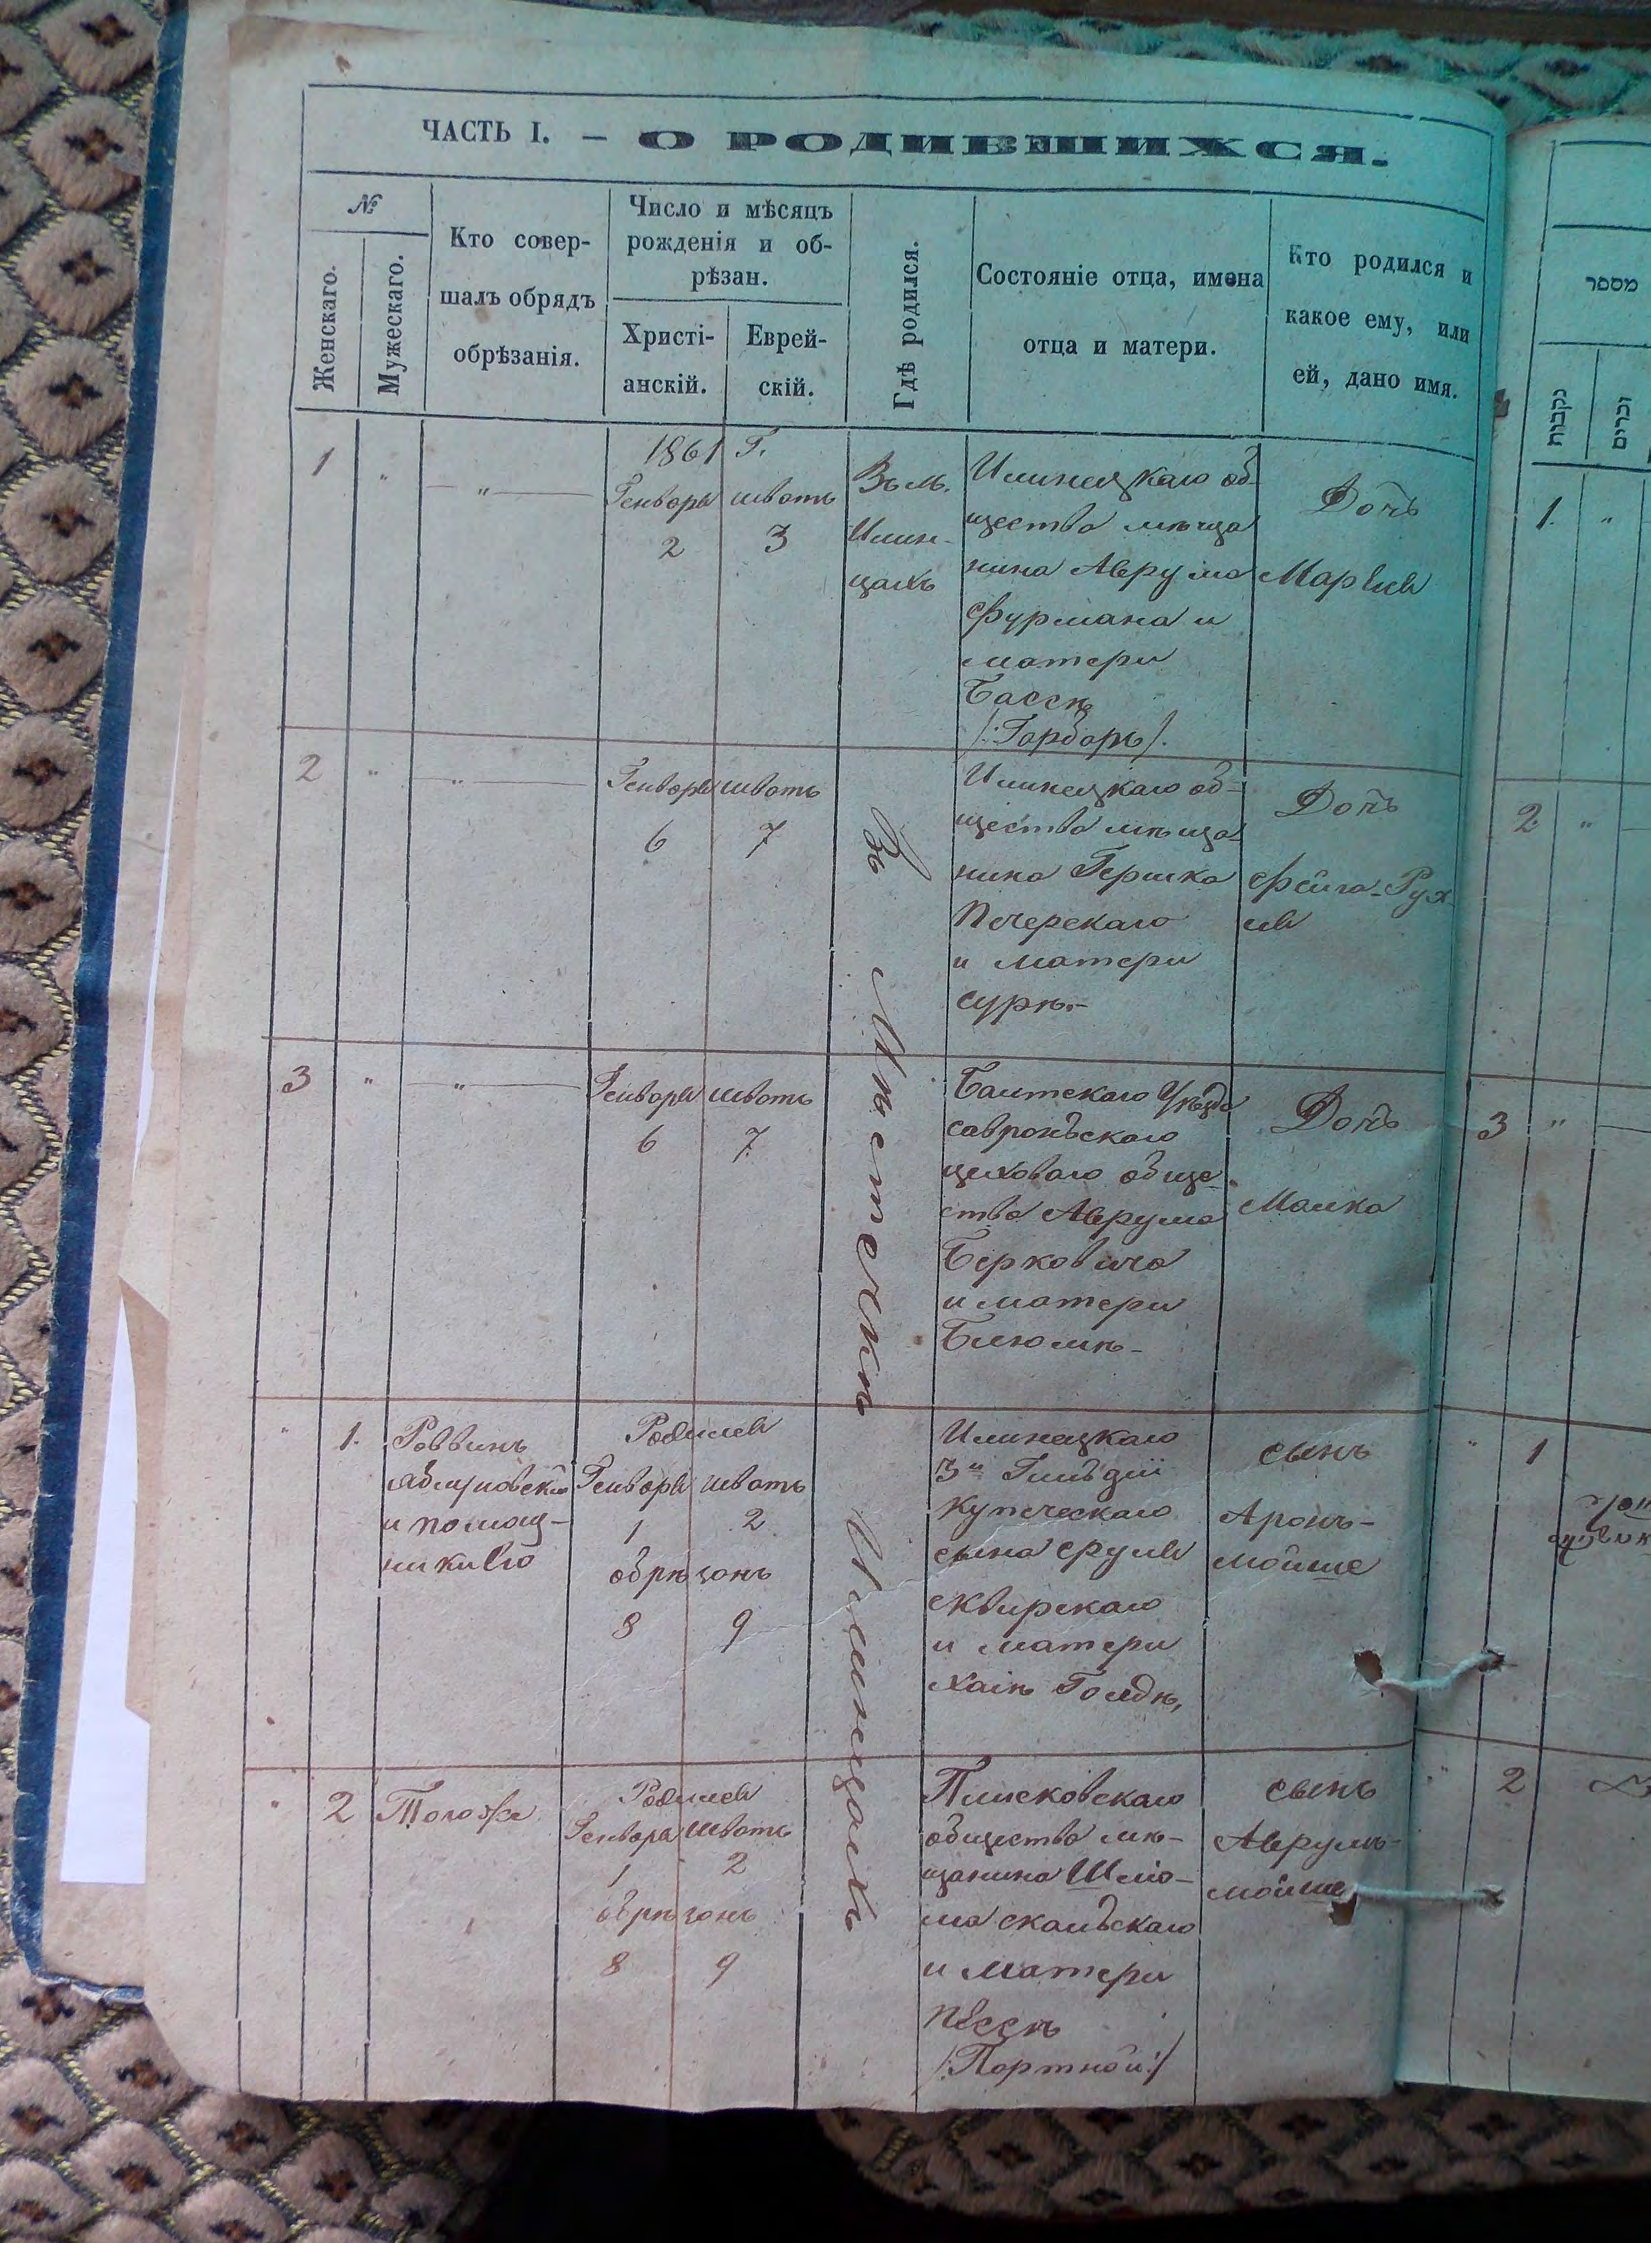 ЧАСТЬ I. – О РОДИВШИХСЯ.
№
Женскаго.
Мужескаго.
Кто совер-
шалъ обрядъ
обрѣзанія.
Число и мѣсяцъ
рожденія и об-
рѣзан.
Христі-
анскій.
Еврей-
скій.
Гдѣ родился.
Состояніе отца, имена
отца и матери.
Кто родился и
какое ему, или
ей, дано имя.
1
"
— " —
1861 Г.
Генворя
2
шватъ
3
Въ м.
Илин-
цахъ
Илинецкаго об-
щества мѣща
нина Аврума
Фурмана и
матери
Бассѣ
/:Гарбарь/.
Дочь
Марѣля
2
"
— " —
Генворя
6
шватъ
7
Въ Мѣстечкѣ Илинцахъ
Илинецкаго об-
щества мѣща-
нина Гершка
Печерскаго
и матери
Сурѣ.-
Дочь
Фейга-Рух
ля
3
"
— " —
Генворя
6
шватъ
7.
Балтскаго Уѣзда
Савронъскаго
цеховаго обще-
ства Аврума
Берковича
и матери
Блюмѣ-
Дочь
Малка
"
1.
Раввинъ
и помощ-
никъ Его
Родился
Генворя
1
шватъ
2
обрѣзонъ
8
9
Илинецкаго
3й Гильдіи
купческаго
сына Сруля
Сквирскаго
и матери
Хаікѣ Голдѣ,
сынъ
Аронъ-
мойше
"
2
Тоже
Родился
Генворя
1
шватъ
2
обрѣзонъ
8
9
Плисковскаго
общества мѣ-
щанина Шлио-
ма Скальскаго
и матери
Песѣ
/:Портной:/
сынъ
Аврумъ-
мойше
מספר
נקבות
זכרים
1.
"
2.
"
3
"
"
1
"
2